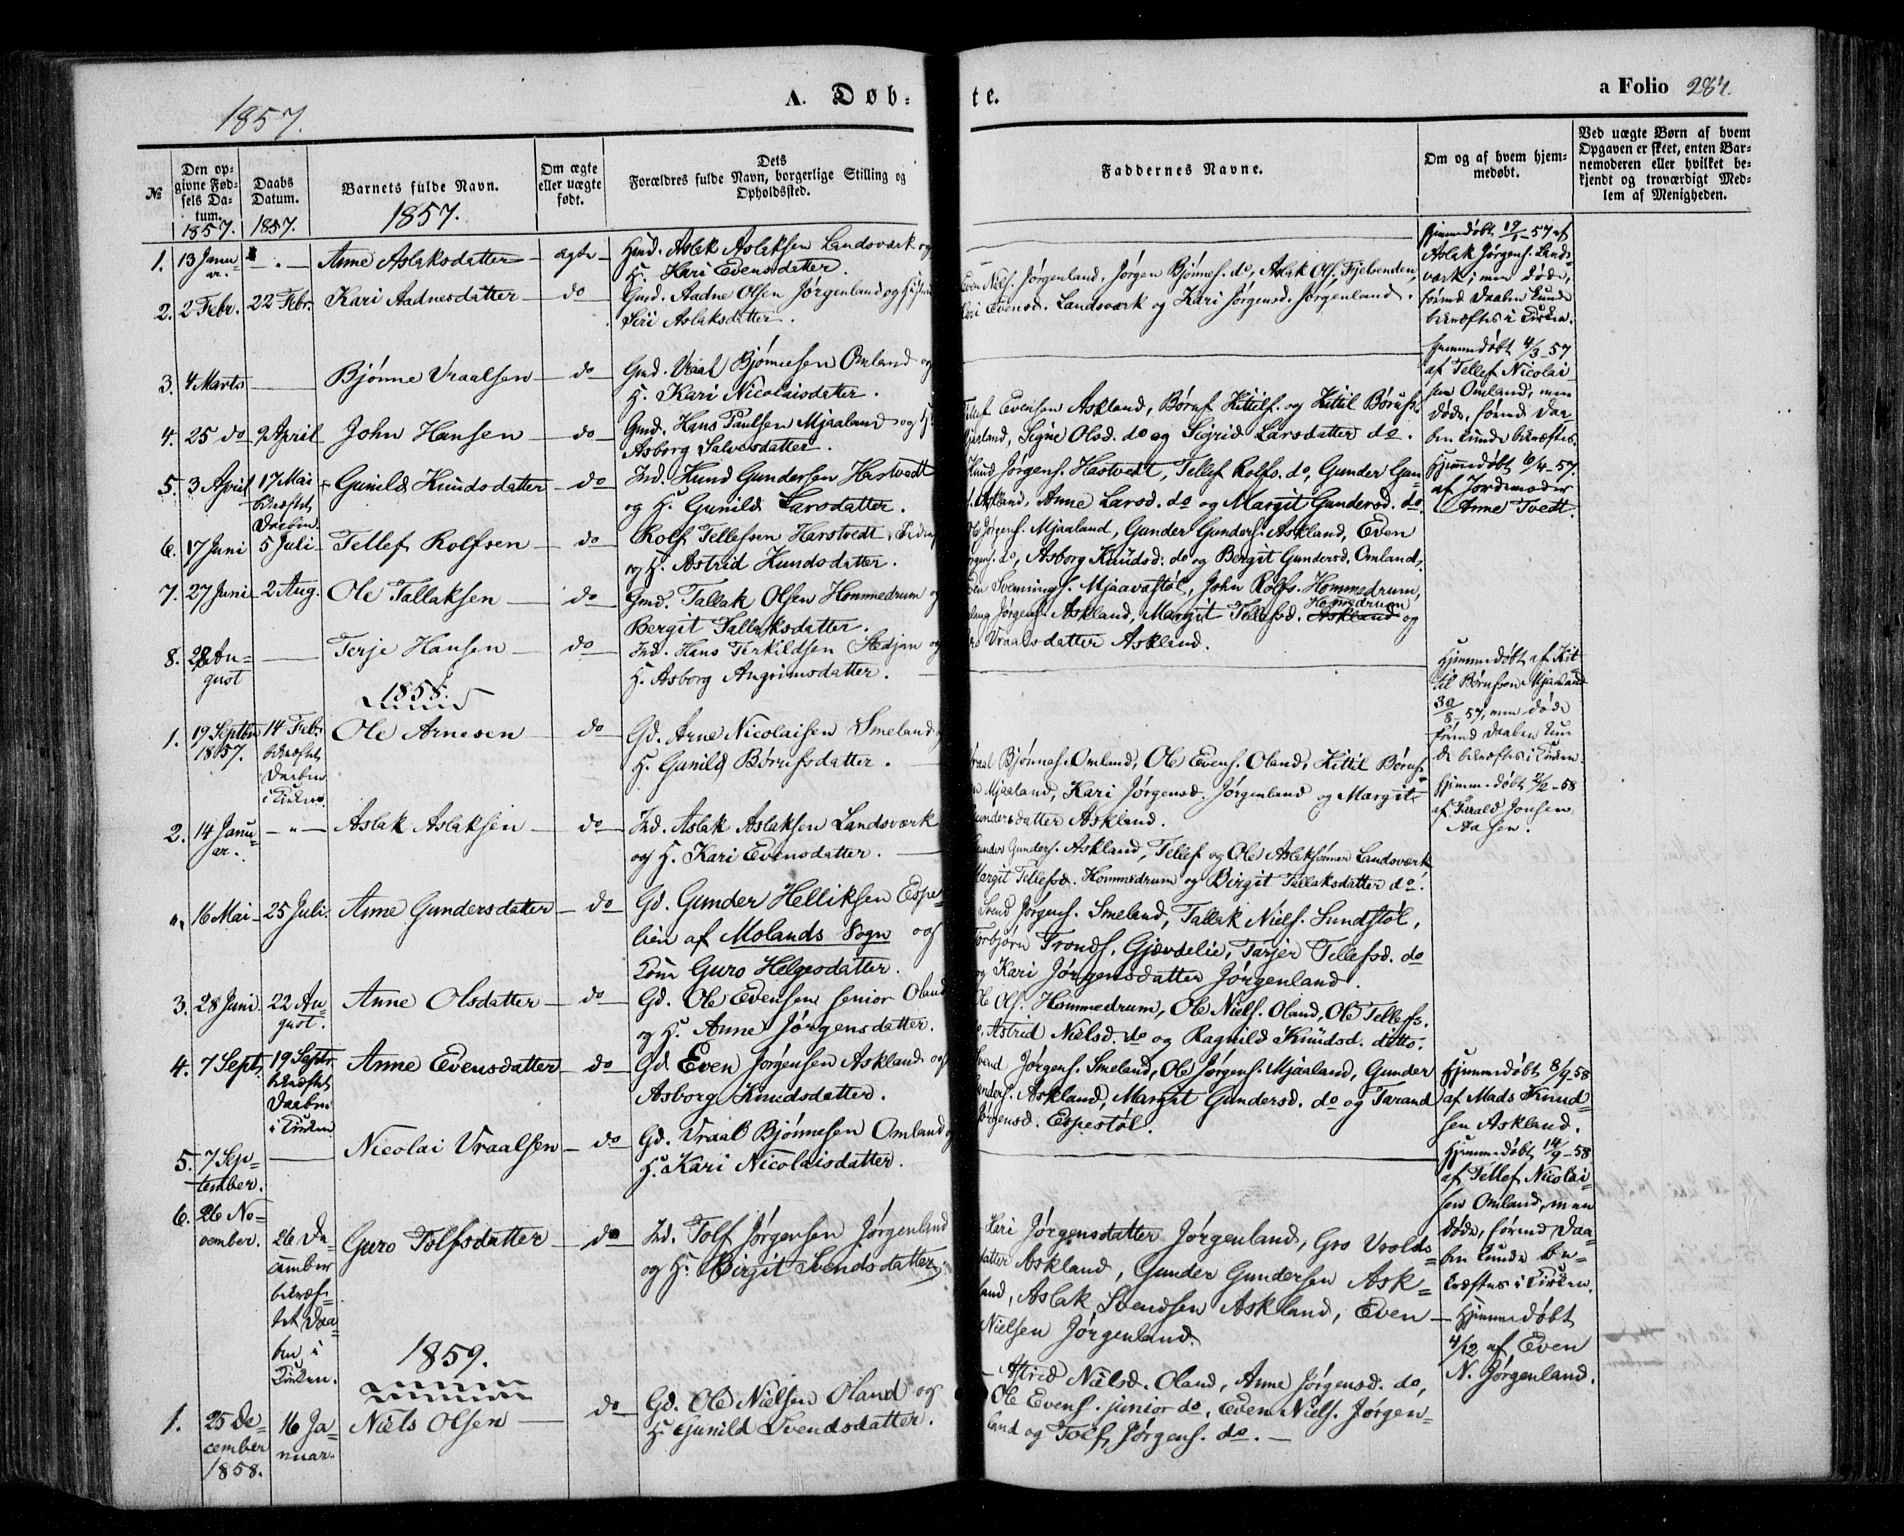 1857.
A. Døb-
te.
a Folio 284.
№
Den op-
givne Fød-
sels Da-
tum.
1857.
Daabs
Datum.
1857.
Barnets fulde Navn.
1857.
Om ægte
eller uægte
født.
Dets
Forældres fulde Navn, borgerlige Stilling og
Opholdssted.
Faddernes Navne.
Om og af hvem hjem-
medøbt.
Ved uægte Børn af hvem
Opgaven er skeet, enten Bar-
nemoderen eller hvilket be-
kjendt og troværdigt Med-
lem af Menigheden.
1. 13 Janu- — " — Anne Aslaksdatter — ægte — Gmd. Aslak Aslaksen Landsværk og
ar. H. Kari Evensdatter.
Hjemmedøbt 17/1-57 af
Aslak Jørgens. Lands-
værk; men døde,
førend Daaben kunde
bekræftes i Kirken.
2. 2 Febr. 22 Febr. Kari Aadnesdatter — do — Gmd. Aadne Olsen Jørgenland og Hustru
Siri Aslaksdatter.
Even Niels. Jørgenland, Jørgen Bjønnes. do, Aslak Ols. Fjelbenden,
Kari Evensd. Landsværk og Kari Jørgensd. Jørgenland.
3. 4 Marts — Bjønne Vraalsen — do — Gmd. Vraal Bjønnesen Omland og
H. Kari Nicolaisdatter.
Hjemmedøbt 4/3-57
af Tellef Nicolai-
sen Omland, men
døde, førend Daa-
ben kunde bekræftes.
4. 25 do 9 April John Hansen — do — Gmd. Hans Paulsen Mjaaland og H.
Asborg Salvesdatter.
Tellef Evensen Askland, Børuf Kitils. og Kittil Børufs.
Mjaaland, Signe Olsd. do og Sigrid Larsdatter do.
5. 3 April 17 Mai Gunild Knudsdatter — do — Ind. Knud Gundersen Hastvedt
bekræftet
Daaben
og H. Gunild Larsdatter.
Knud Jørgens. Hastvedt, Tellef Rolfs. do, Gunder Gun-
Askland, Anne Larsd. do og Margit Gundersd. do
Hjemmedøbt 6/4-57
af Jordemoder
Anne Tvedt.
6. 17 Juni 5 Juli Tellef Rolfsen — do — Rolf Tellefsen Harstvedt,
og H. Astrid Knudsdatter.
Ole Jørgens. Mjaaland, Gunder Gunders. Askland, Even
Jørgens. do, Asborg Knudsd. do og Bergit Gundersd. Omland,
7. 27 Juni 2 Aug. Ole Tallaksen — do — Gmd. Tallak Olsen Hommedrum og
Bergit Tallaksdatter.
Svennings. Mjaavstøl, John Rolfs. Hommedrum,
Jørgens. Askland, Margit Tellefsd. Hommedrum Askland og
Vraalsdatter Askland.
8. 28 Au- — Terje Hansen — do — Ind. Hans Terkildsen Stedjen og
gust H. Asborg Angrimsdatter.
Hjemmedøbt af Kit-
til Børufsen Mjaaland
30/8-57, men døde
førend Daaben kun-
de bekræftes i Kirken.
1858.
1. 19 Septbr 14 Febr. Ole Arnesen — do — Gd. Arne Nicolaisen Smeland
1857. bekræftet
Daaben
i Kirken.
H. Gunild Børufsdatter.
Vraal Bjønnes. Omland, Ole Evens. Oland, Kittil Børuf-
Mjaaland, Kari Jørgensd. Jørgenland og Margit
Gundersdatter Askland.
Hjemmedøbt 2/2-58
af Tarald Jonsen
Aasen.
2. 14 Janu- — " — Aslak Aslaksen — do — Ind. Aslak Aslaksen Landsværk
ar. og H. Kari Evensdatter. —
Gunder Gunders. Askland, Tellef og Ole Aslaksønner Landsværk
Margit Tellefsd. Hommedrum og Birgit Tallaksdatter do.
16 Mai 25 Juli. Anne Gundersdatter — do — Gd. Gunder Helliksen Espe-
lien af Molands Sogn og
Kone Guro Helgesdatter.
Svend Jørgens. Smeland, Tallak Niels. Sundstøl,
Torbjørn Tronds. Gjøvdelie, Tarjer Tellefsd. do
og Kari Jørgensdatter Jørgenland.
3. 28 Juni 22 Au- Anne Olsdatter — do — Gd. Ole Evensen senior Oland
gust. og H. Anne Jørgensdatter.
Ole Ols. Hommedrum, Ole Niels. Oland, Ole Tellefs.
Astrid Nielsd. do og Ragnild Knudsd. ditto.
4. 7 Sept. 19 Septr. Anne Evensdatter — do — Gd. Even Jørgensen Askland og
bekræftet
Daaben
i Kirken
Asborg Knudsdatter.
Svend Jørgens. Smeland, Ole Jørgens. Mjaaland, Gunder
Gunders. Askland, Margit Gundersd. do og Tarand
Jørgensd. Espestøl.
Hjemmedøbt 8/9-58
af Mads Knud-
sen Askland.
5. 7 Sep- — Nicolai Vraalsen — do — Gd. Vraal Bjønnesen Omland og
tember. H. Kari Nicolaisdatter.
Hjemmedøbt 14/9-58
af Tellef Nicolai-
sen Omland, men
døde, førend Daa-
ben kunde be-
kræftes i Kirken.
6. 26 No- 26 De- Guro Tolfsdatter — do — Ind. Tolf Jørgensen Jørgenland
vember. cember
bekræf-
tet Daa-
ben i
Kirken.
og H. Birgit Svendsdatter
Kari Jørgensdatter Jørgenland, Gro Vrolds-
datter Askland, Gunder Gundersen Ask-
land, Aslak Svendsen Askland, Even
Nielsen Jørgenland.
— Hjemmedøbt
4/12 af Even
N. Jørgenland.
1859.
1. 25 De- 16 Ja- Niels Olsen — do — Gd. Ole Nielsen Oland og
cember nuar. H. Gunild Svendsdatter.
1858.
— Astrid Nielsd. Oland, Anne Jørgensd. do,
Ole Evens. junior do, Even Niels. Jørgen-
land og Tolf Jørgens. do. —